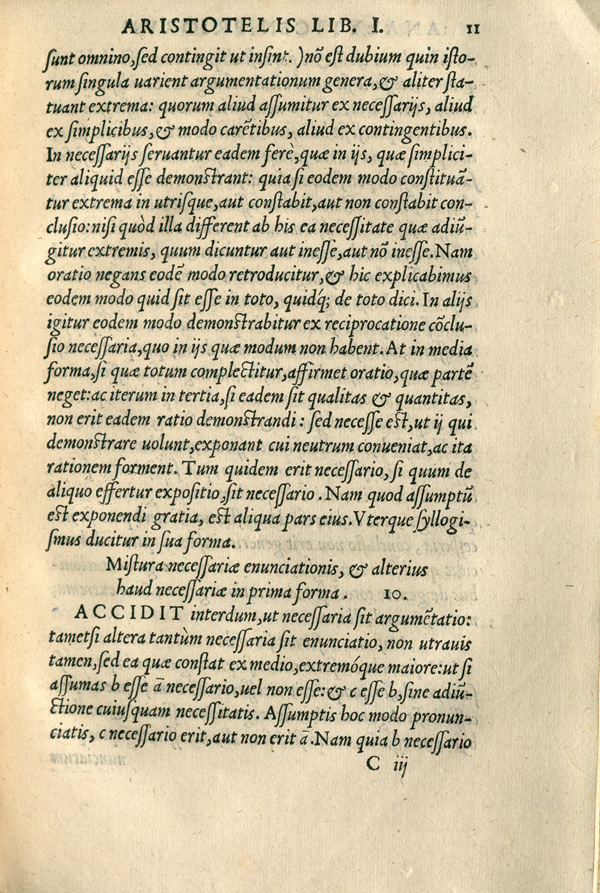 ARISTOTELIS LIB. I. 11
ſunt omnino, ſed contingit ut inſint. )nõ eſt dubium quin iſto-
rum ſingula uarient argumentationum genera, & aliter ſta-
tuant extrema: quorum aliud aſſumitur ex neceſſarijs, aliud
ex ſimplicibus, & modo carẽtibus, aliud ex contingentibus.
In neceſſarijs ſeruantur eadem ferè, quæ in ijs, quæ ſimplici-
ter aliquid eſſe demonſtrant: quia ſi eodem modo conſtituã-
tur extrema in utriſque, aut conſtabit, aut non conſtabit con-
cluſio: niſi quòd illa different ab his ea neceſſitate quæ adiũ-
gitur extremis, quum dicuntur aut ineſſe, aut nõ ineſſe. Nam
oratio negans eodẽ modo retroducitur, & hic explicabimus
eodem modo quid ſit eſſe in toto, quidq; de toto dici. In alijs
igitur eodem modo demonſtrabitur ex reciprocatione cõclu-
ſio neceſſaria, quo in ijs quæ modum non habent. At in media
forma, ſi quæ totum complectitur, affirmet oratio, quæ partẽ
neget: ac iterum in tertia, ſi eadem ſit qualitas & quantitas,
non erit eadem ratio demonſtrandi: ſed neceſſe eſt, ut ij qui
demonſtrare uolunt, exponant cui neutrum conueniat, ac ita
rationem forment. Tum quidem erit neceſſario, ſi quum de
aliquo effertur expoſitio, ſit neceſſario. Nam quod aſſumptũ
eſt exponendi gratia, eſt aliqua pars eius. Vterque ſyllogi-
ſmus ducitur in ſua forma.
Miſtura neceſſariæ enunciationis, & alterius
haud neceſſariæ in prima forma. 10.
ACCIDIT interdum, ut neceſſaria ſit argumẽtatio:
tametſi altera tantùm neceſſaria ſit enunciatio, non utrauis
tamen, ſed ea quæ conſtat ex medio, extremóque maiore: ut ſi
aſſumas b eſſe ā neceſſario, uel non eſſe: & c eſſe b, ſine adiũ-
ctione cuiuſquam neceſſitatis. Aſſumptis hoc modo pronun-
ciatis, c neceſſario erit, aut non erit ā. Nam quia b neceſſario
C iij